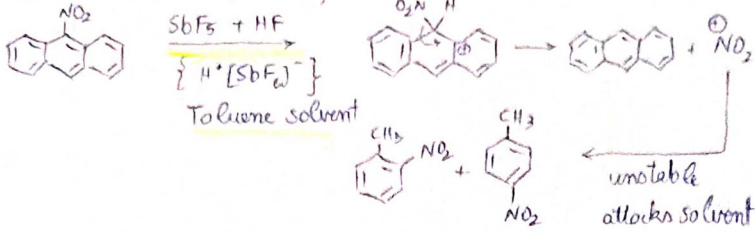 NO₂
SbF₅ + HF
{ H⁺[SbF₆]⁻ }
Toluene solvent
O₂N H
⊕
+ ⊕NO₂
CH₃
NO₂
+
CH₃
NO₂
unstable
attacks solvent